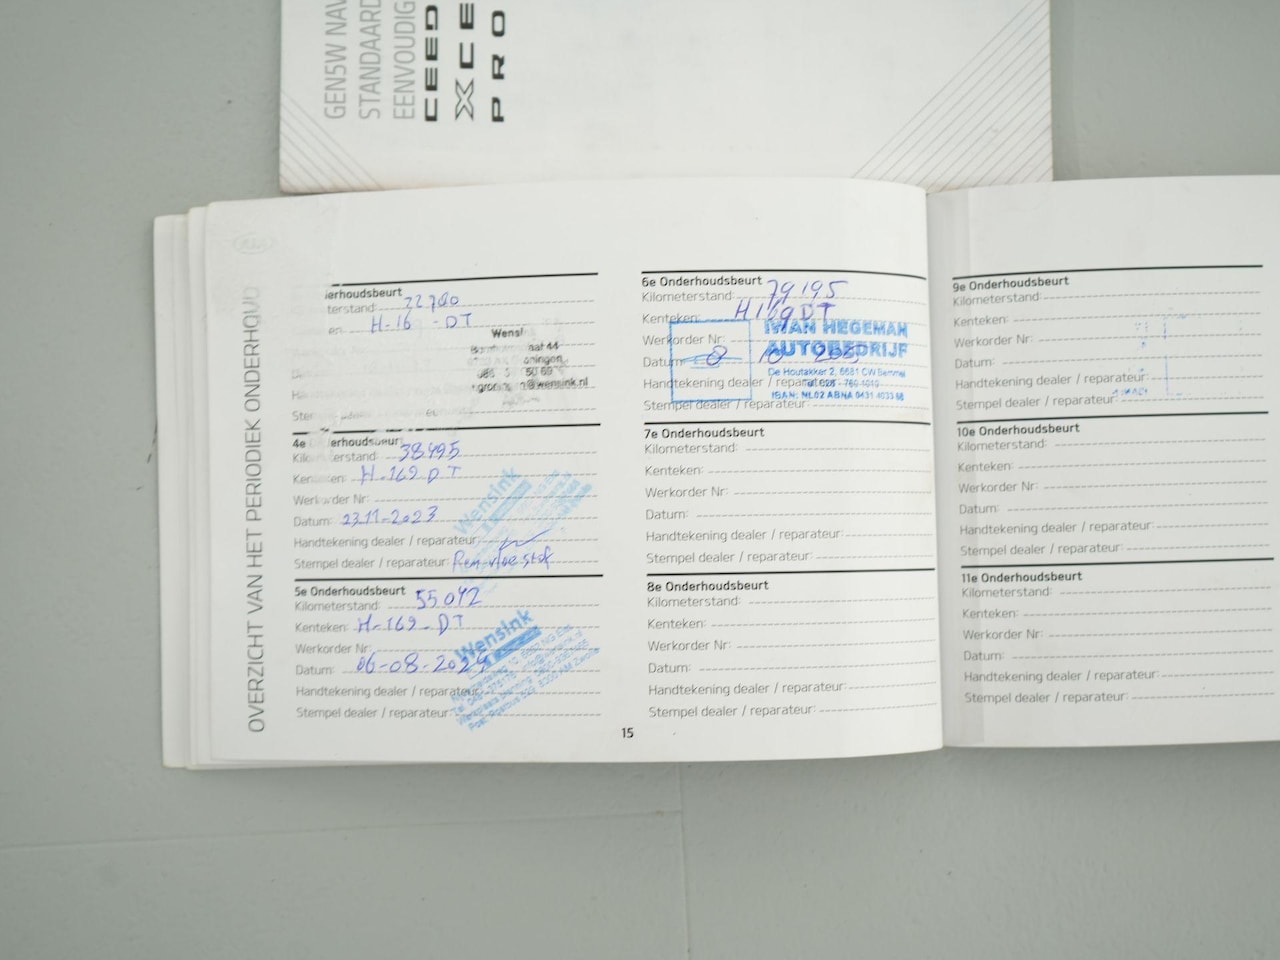 GEN5W NAV
STANDAARD
EENVOUDIG
CEED
XCE
PRO
OVERZICHT VAN HET PERIODIEK ONDERHOUD
erhoudsbeurt
terstand: 22700
en: H-16 -DT
Wens
44
@wensink.nl
4e erhoudsbeurt
Kilo erstand: 38495
Kenteken: H-169 DT
Werkorder Nr:
Datum: 23-11-2023
Handtekening dealer / reparateur:
Stempel dealer / reparateur: Remvloeistof
Wensink
5e Onderhoudsbeurt
Kilometerstand: 55042
Kenteken: H-169-DT
Werkorder Nr:
Datum: 06-08-2024
Handtekening dealer / reparateur:
Stempel dealer / reparateur:
Wensink
15
6e Onderhoudsbeurt
Kilometerstand: 79195
Kenteken: H169DT
Werkorder Nr:
Datum: 8 10
Handtekening dealer / reparateur:
Stempel dealer / reparateur:
IWAN HEGEMAN
AUTOBEDRIJF
De Houtakker 2, 6681 CW Bemmel
7e Onderhoudsbeurt
Kilometerstand:
Kenteken:
Werkorder Nr:
Datum:
Handtekening dealer / reparateur:
Stempel dealer / reparateur:
8e Onderhoudsbeurt
Kilometerstand:
Kenteken:
Werkorder Nr:
Datum:
Handtekening dealer / reparateur:
Stempel dealer / reparateur:
9e Onderhoudsbeurt
Kilometerstand:
Kenteken:
Werkorder Nr:
Datum:
Handtekening dealer / reparateur:
Stempel dealer / reparateur:
10e Onderhoudsbeurt
Kilometerstand:
Kenteken:
Werkorder Nr:
Datum:
Handtekening dealer / reparateur:
Stempel dealer / reparateur:
11e Onderhoudsbeurt
Kilometerstand:
Kenteken:
Werkorder Nr:
Datum:
Handtekening dealer / reparateur:
Stempel dealer / reparateur: